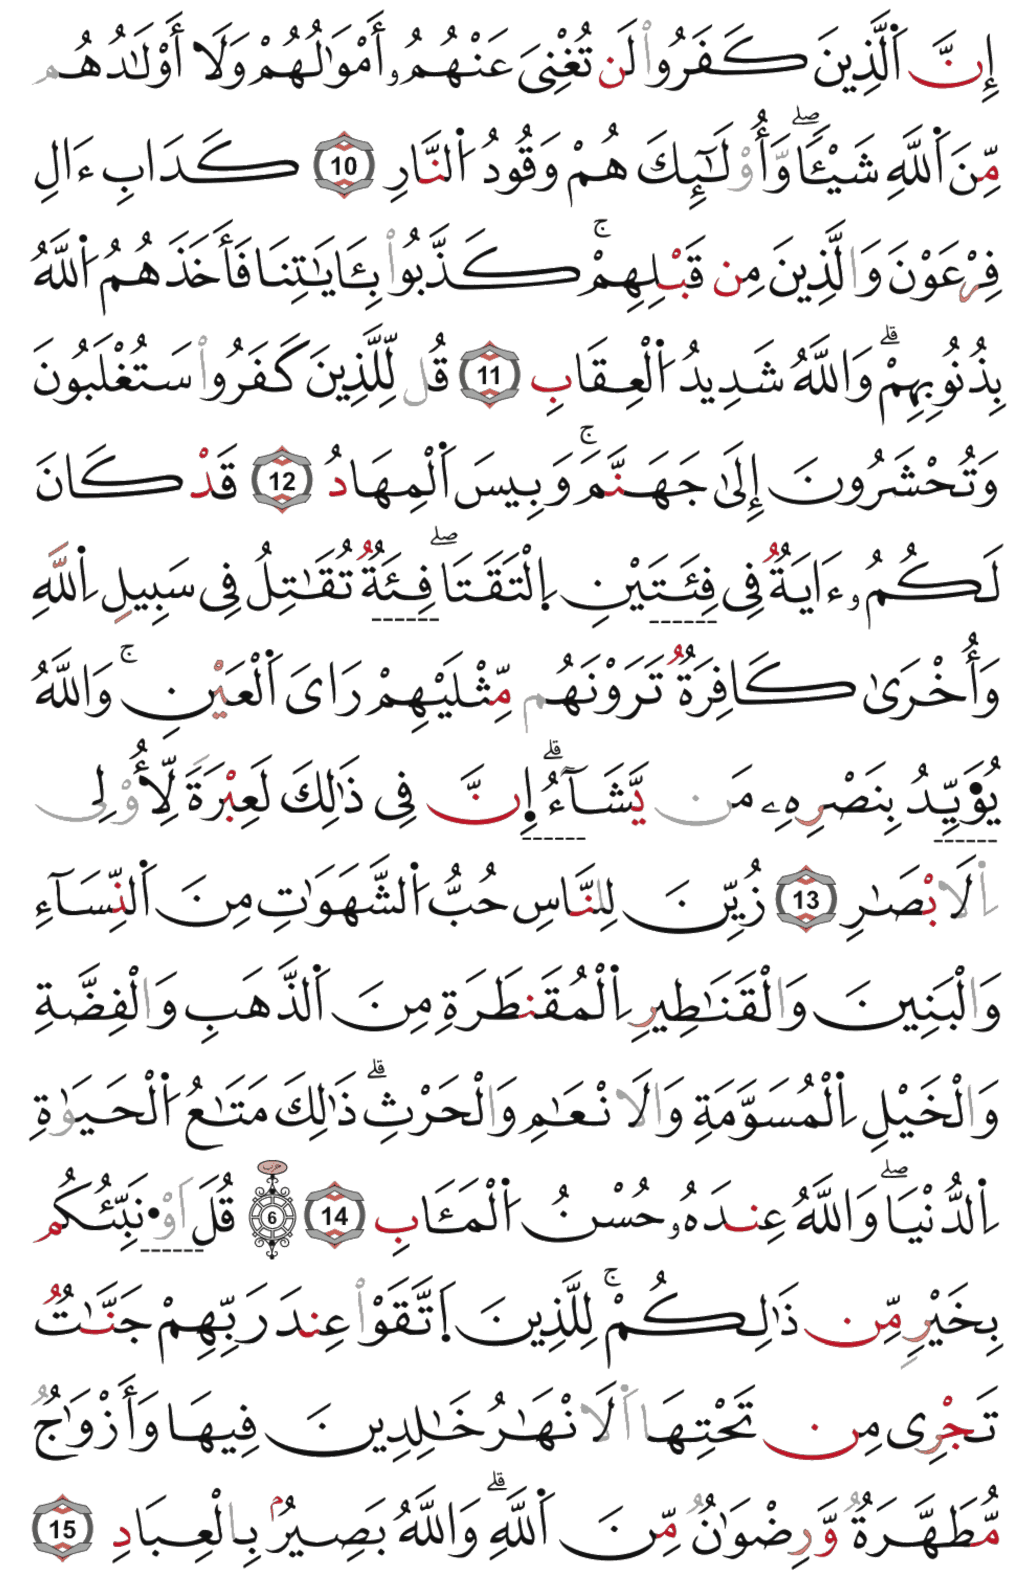 إِنَّ اَ۬لَّذِينَ كَفَرُواْ لَن تُغْنِيَ عَنْهُمُۥٓ أَمْوَٰلُهُمْ وَلَآ أَوْلَٰدُهُم
مِّنَ اَ۬للَّهِ شَيْـٔٗاۖ وَأُوْلَٰٓئِكَ هُمْ وَقُودُ اُ۬لنَّارِ 10 كَدَابِ ءَالِ
فِرْعَوْنَ وَالَّذِينَ مِن قَبْلِهِمْۚ كَذَّبُواْ بِـَٔايَٰتِنَا فَأَخَذَهُمُ اُ۬للَّهُ
بِذُنُوبِهِمْۗ وَاللَّهُ شَدِيدُ اُ۬لْعِقَابِ 11 قُل لِّلَّذِينَ كَفَرُواْ سَتُغْلَبُونَ
وَتُحْشَرُونَ إِلَىٰ جَهَنَّمَۚ وَبِيسَ اَ۬لْمِهَادُ 12 قَدْ كَانَ
لَكُمُۥٓ ءَايَةٞ فِي فِئَتَيْنِ اِ۪لْتَقَتَاۖ فِئَةٞ تُقَٰتِلُ فِي سَبِيلِ اِ۬للَّهِ
وَأُخْرَىٰ كَافِرَةٞ تَرَوْنَهُم مِّثْلَيْهِمْ رَايَ اَ۬لْعَيْنِۚ وَاللَّهُ
يُؤَيِّدُ بِنَصْرِهِۦ مَن يَّشَآءُۗ اِ۪نَّ فِي ذَٰلِكَ لَعِبْرَةٗ لِّأُوْلِي
اِ۬لَابْصَٰرِ 13 زُيِّنَ لِلنَّاسِ حُبُّ اُ۬لشَّهَوَٰتِ مِنَ اَ۬لنِّسَآءِ
وَالْبَنِينَ وَالْقَنَٰطِيرِ اِ۬لْمُقَنطَرَةِ مِنَ اَ۬لذَّهَبِ وَالْفِضَّةِ
وَالْخَيْلِ اِ۬لْمُسَوَّمَةِ وَالَانْعَٰمِ وَالْحَرْثِۗ ذَٰلِكَ مَتَٰعُ اُ۬لْحَيَوٰةِ
اِ۬لدُّنْيَاۖ وَاللَّهُ عِندَهُۥ حُسْنُ اُ۬لْمَـَٔابِ 14 حزب 6 قُلَ اَوْ۬نَبِّئُكُم
بِخَيْرٖ مِّن ذَٰلِكُمْۚ لِلَّذِينَ اَ۪تَّقَوْاْ عِندَ رَبِّهِمْ جَنَّٰتٞ
تَجْرِي مِن تَحْتِهَا اَ۬لَانْهَٰرُ خَٰلِدِينَ فِيهَا وَأَزْوَٰجٞ
مُّطَهَّرَةٞ وَرِضْوَٰنٞ مِّنَ اَ۬للَّهِۗ وَاللَّهُ بَصِيرُۢ بِالْعِبَادِ 15